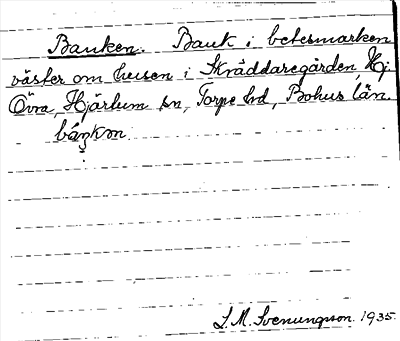 Banken. Bank i betesmarken
väster om husen i Skräddaregården, Hj.
Övra, Hjärtum sn, Torpe hd, Bohus län.
báŋkən
L.M. Svenungson. 1935